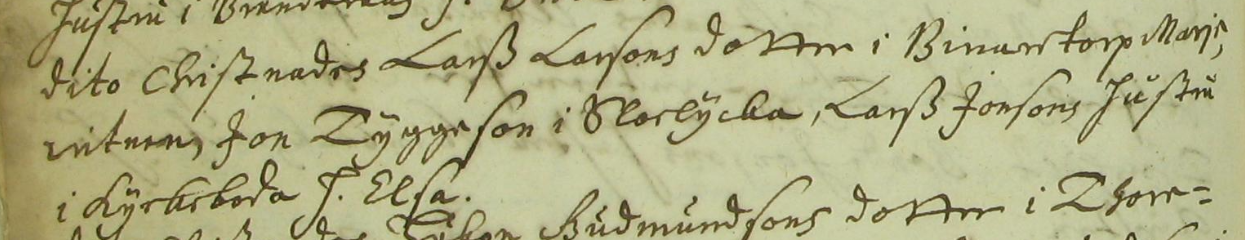 Hustru i
dito Christnades Larß Larsons dotter i Binnerstorp Marje,
witnen, Jon Tyggeson i Slocklycka, Larß Jonsons Hustru
i Kyrkeboda H. Elsa.
Gudmundsons dotter i Thore=